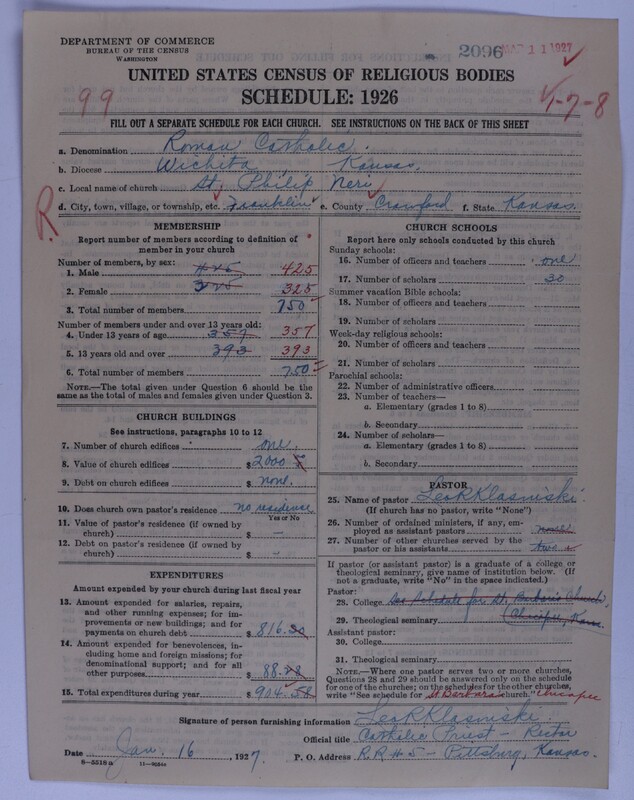 DEPARTMENT OF COMMERCE
BUREAU OF THE CENSUS
WASHINGTON
2096 MAR 11 1927
UNITED STATES CENSUS OF RELIGIOUS BODIES
SCHEDULE: 1926
99
1-7-8
FILL OUT A SEPARATE SCHEDULE FOR EACH CHURCH. SEE INSTRUCTIONS ON THE BACK OF THIS SHEET
a. Denomination Roman Catholic.
b. Diocese Wichita, Kansas.
c. Local name of church St. Philip Neri
d. City, town, village, or township, etc. Franklin e. County Crawford f. State Kansas.
R
MEMBERSHIP
Report number of members according to definition of member in your church
Number of members, by sex:
1. Male 425 425
2. Female 325 325
3. Total number of members 750
Number of members under and over 13 years old:
4. Under 13 years of age 357 357
5. 13 years old and over 393 393
6. Total number of members 750
NOTE.—The total given under Question 6 should be the
same as the total of males and females given under Question 3.
CHURCH BUILDINGS
See instructions, paragraphs 10 to 12
7. Number of church edifices one.
8. Value of church edifices $ 2000
9. Debt on church edifices $ none.
10. Does church own pastor's residence no residence
Yes or No
11. Value of pastor's residence (if owned by
church) $ —
12. Debt on pastor's residence (if owned by
church) $ —
EXPENDITURES
Amount expended by your church during last fiscal year
13. Amount expended for salaries, repairs,
and other running expenses; for im-
provements or new buildings; and for
payments on church debt $ 816.
14. Amount expended for benevolences, in-
cluding home and foreign missions; for
denominational support; and for all
other purposes $ 88.
15. Total expenditures during year $ 904.58
CHURCH SCHOOLS
Report here only schools conducted by this church
Sunday schools:
16. Number of officers and teachers one
17. Number of scholars 30
Summer vacation Bible schools:
18. Number of officers and teachers
19. Number of scholars
Week-day religious schools:
20. Number of officers and teachers
21. Number of scholars
Parochial schools:
22. Number of administrative officers
23. Number of teachers—
a. Elementary (grades 1 to 8)
b. Secondary
24. Number of scholars—
a. Elementary (grades 1 to 8)
b. Secondary
PASTOR
25. Name of pastor Leo R Klasniski
(If church has no pastor, write "None")
26. Number of ordained ministers, if any, em-
ployed as assistant pastors
27. Number of other churches served by the
pastor or his assistants two
If pastor (or assistant pastor) is a graduate of a college or
theological seminary, give name of institution below. (If
not a graduate, write "No" in the space indicated.)
Pastor:
28. College See Schedule for St. Barbara Church,
29. Theological seminary Chicopee, Kans.
Assistant pastor:
30. College
31. Theological seminary
NOTE.—Where one pastor serves two or more churches,
Questions 28 and 29 should be answered only on the schedule
for one of the churches; on the schedules for the other churches,
write "See schedule for St Barbara church." Chicopee
Signature of person furnishing information Leo R Klasniski.
Official title Catholic Priest - Rector
Date Jan. 16, 1927. P. O. Address R R #5 - Pittsburg, Kansas.
8—5518a